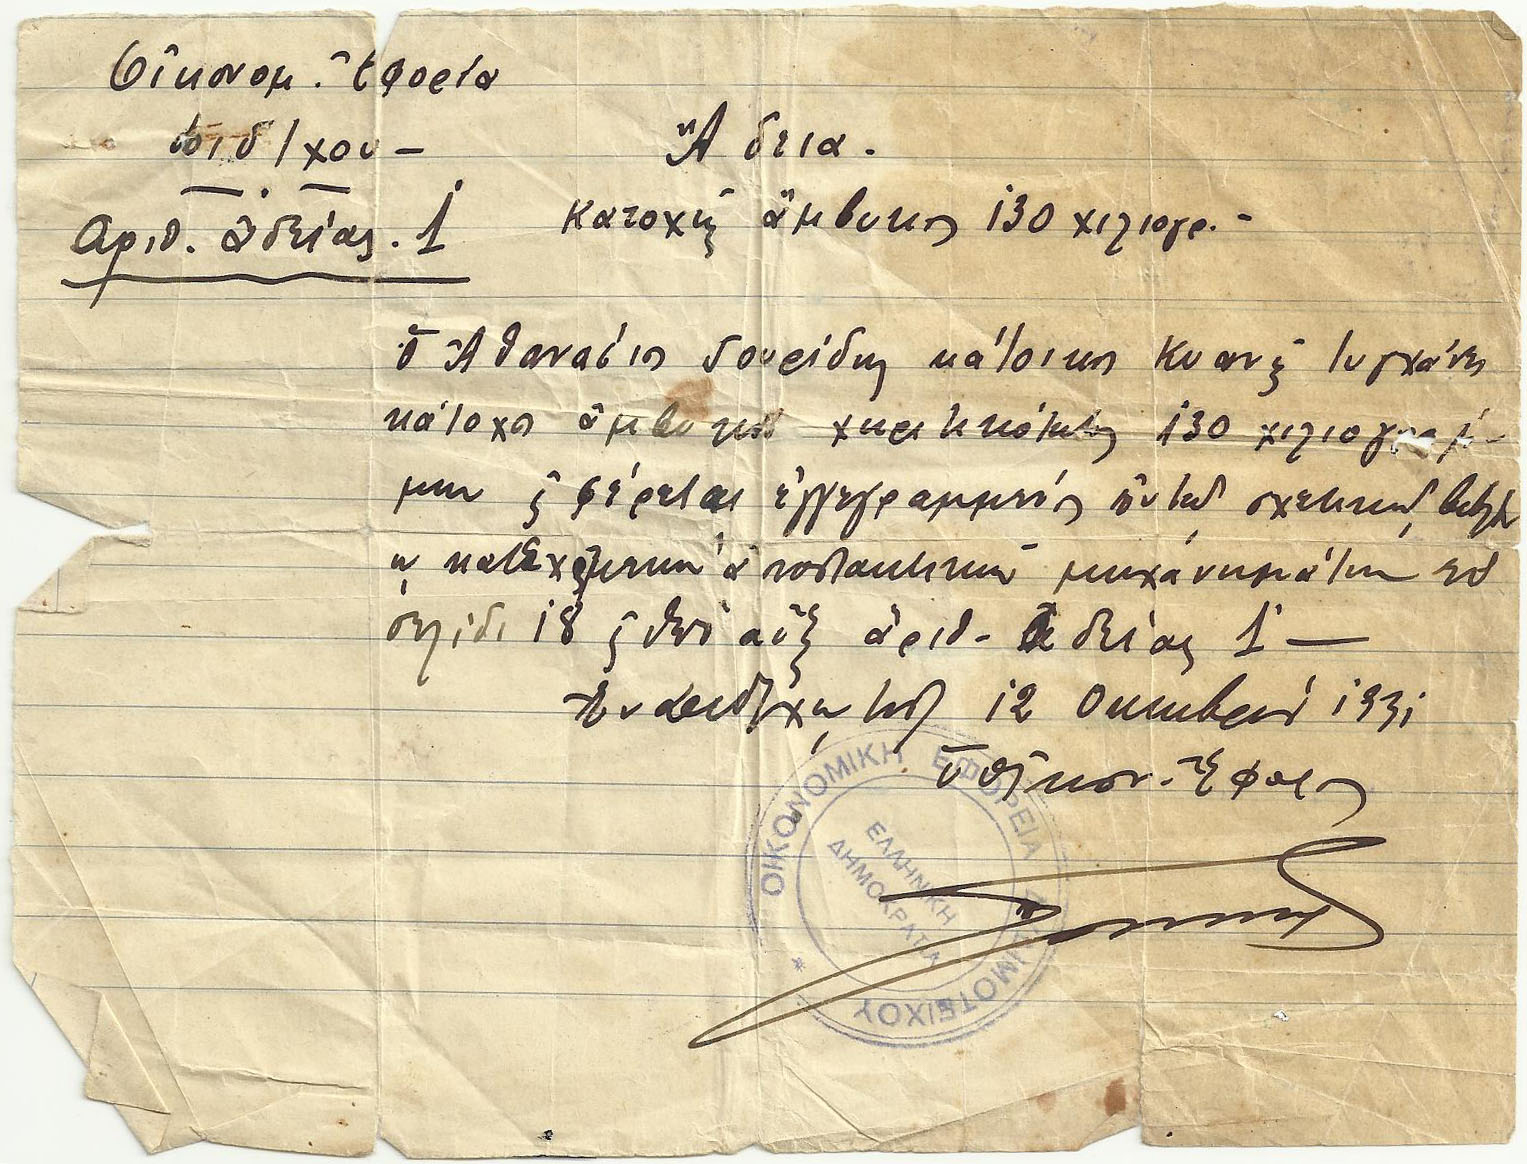 Οἰκονομ. Ἐφορία
Διδ/χου -
Ἄδεια.
Ἀριθ. ἀδείας. 1
Κατοχῆς ἄμβυκος 130 χιλιογρ. -
Ὁ Ἀθανάσιος Γουρίδης κάτοικος Κυανῆς τυγχάνει
κάτοχος ἄμβυκος χωρητικότητος 130 χιλιογράμ-
μων ϗ φέρεται ἐγγεγραμμένος ἐν τῷ σχετικῷ βιβλίῳ
κατεχομένων ἀποστακτικῶν μηχανημάτων ἐν
σελίδι 18 ϗ ὑπ' αὔξ ἀριθ- ἀδείας 1 —
Ἐν Διδ/χῳ τῇ 12 Οκτωβρίου 1931
Ὁ Οἰκον. Ἔφορος
ΟΙΚΟΝΟΜΙΚΗ ΕΦΟΡΕΙΑ ΔΙΔΥΜΟΤΕΙΧΟΥ *
ΕΛΛΗΝΙΚΗ
ΔΗΜΟΚΡΑΤΙΑ